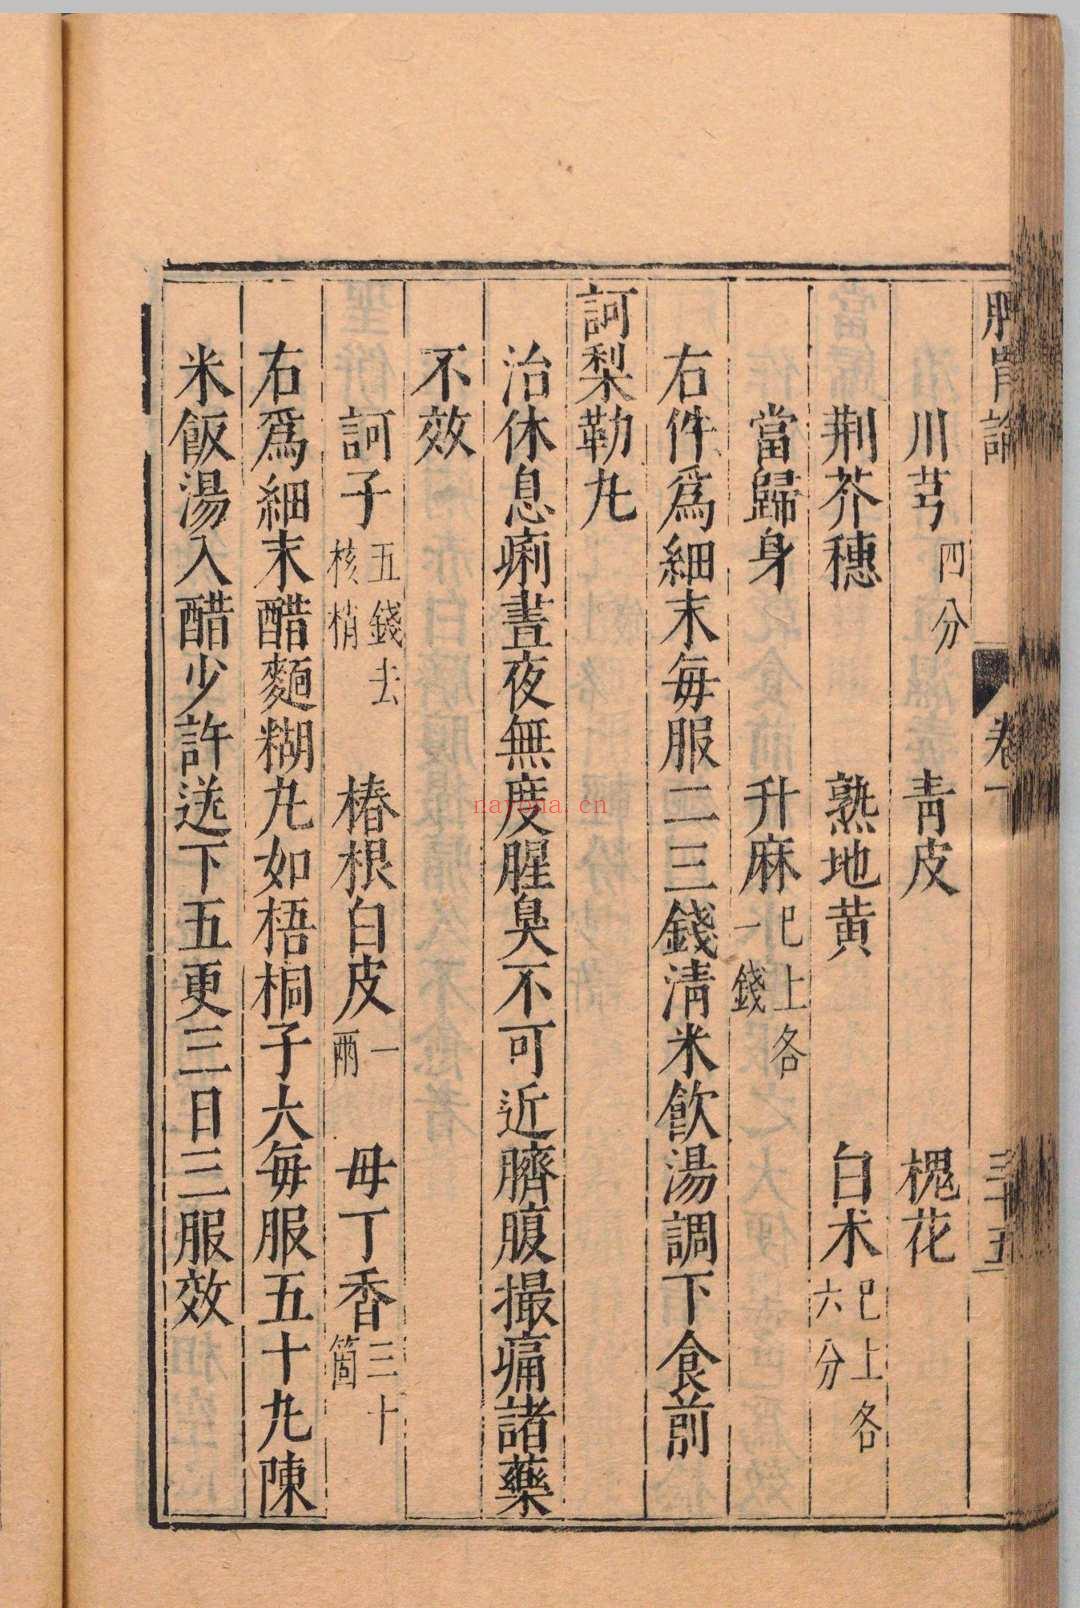 脾胃論 卷一 三十五
川芎四分 青皮 槐花
荆芥穗 熟地黄 白术巳上各六分
當歸身 升麻巳上各一錢
右件爲細末每服二三錢清米飲湯調下食前
訶梨勒丸
治休息痢晝夜無度腥臭不可近臍腹撮痛諸藥
不效
訶子五錢去核梢 椿根白皮一兩 母丁香三十箇
右爲細末醋麵糊丸如梧桐子大每服五十丸陳
米飯湯入醋少許送下五更三日三服效
nayona.cn